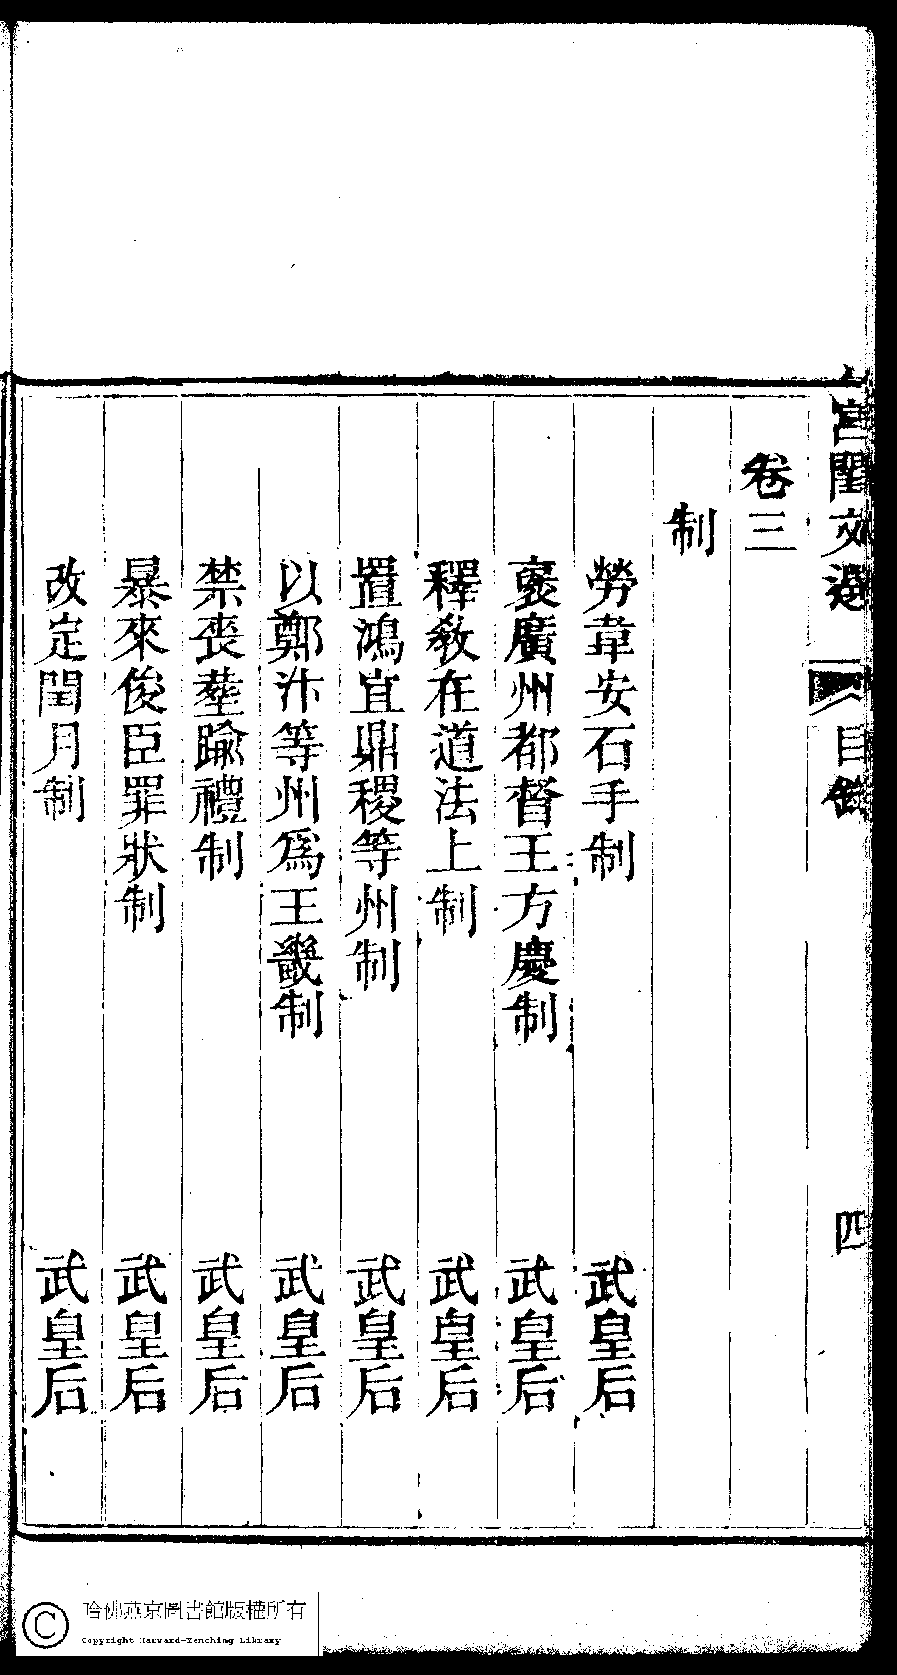 宮閨文選
目錄
四
卷三
制
勞韋安石手制 武皇后
襃廣州都督王方慶制 武皇后
釋教在道法上制 武皇后
置鴻宜鼎稷等州制 武皇后
以鄭汴等州爲王畿制 武皇后
禁喪葬踰禮制 武皇后
暴來俊臣罪狀制 武皇后
改定閏月制 武皇后
哈佛燕京圖書館版權所有
Copyright Harvard-Yenching Library